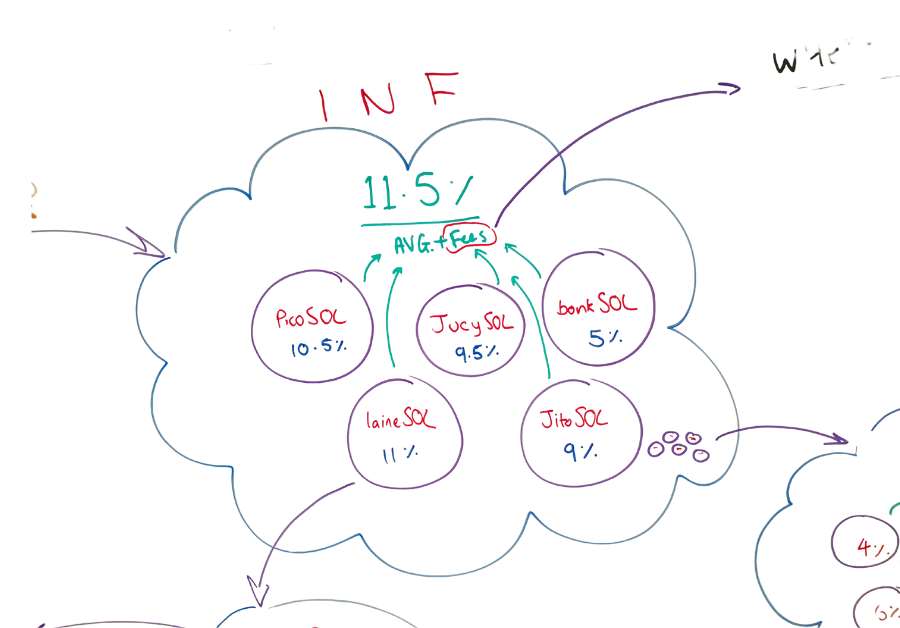 INF
11.5%
AVG.+Fees
PicoSOL
10.5%
JucySOL
9.5%
bonkSOL
5%
laineSOL
11%
JitoSOL
9%
4%